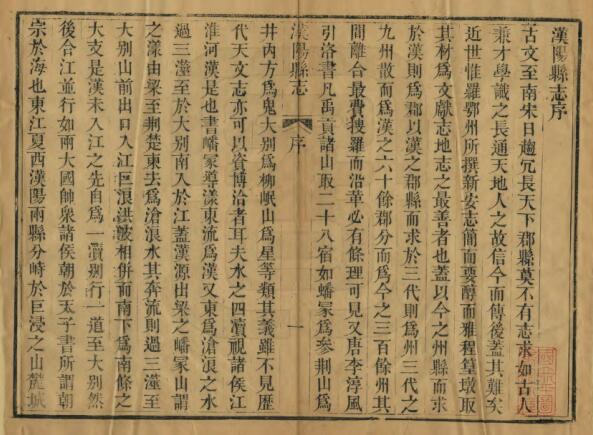 漢陽縣志序
古文至南宋日趨冗長天下郡縣莫不有志求如古人
兼才學識之長通天地人之故信今而傳後蓋其難矣
近世惟羅鄂州所撰新安志簡而要醇而雅程篁墩取
其材爲文獻志地志之最善者也蓋以今之州縣而求
於漢則爲郡以漢之郡縣而求於三代則爲州三代之
九州散而爲漢之六十餘郡分而爲今之三百餘州其
間離合最費搜羅而沿革必有條理可見又唐李淳風
引洛書凡禹貢諸山取二十八宿如嶓冢爲參荆山爲
漢陽縣志
序
一
井內方爲鬼大别爲柳岷山爲星等類其義雖不見歷
代天文志亦可以資博洽者耳夫水之四瀆視諸侯江
淮河漢是也書嶓冢導漾東流爲漢又東爲滄浪之水
過三澨至於大别南入於江蓋漢源出梁之嶓冢山謂
之漾由梁至荆楚東去爲滄浪水其奔流則過三澨至
大别山前出口入江巨浪洪波相併而南下爲南條之
大支是漢未入江之先自爲一瀆别行一道至大别然
後合江並行如兩大國帥衆諸侯朝於天子書所謂朝
宗於海也東江夏西漢陽兩縣分峙於巨浸之山麓城